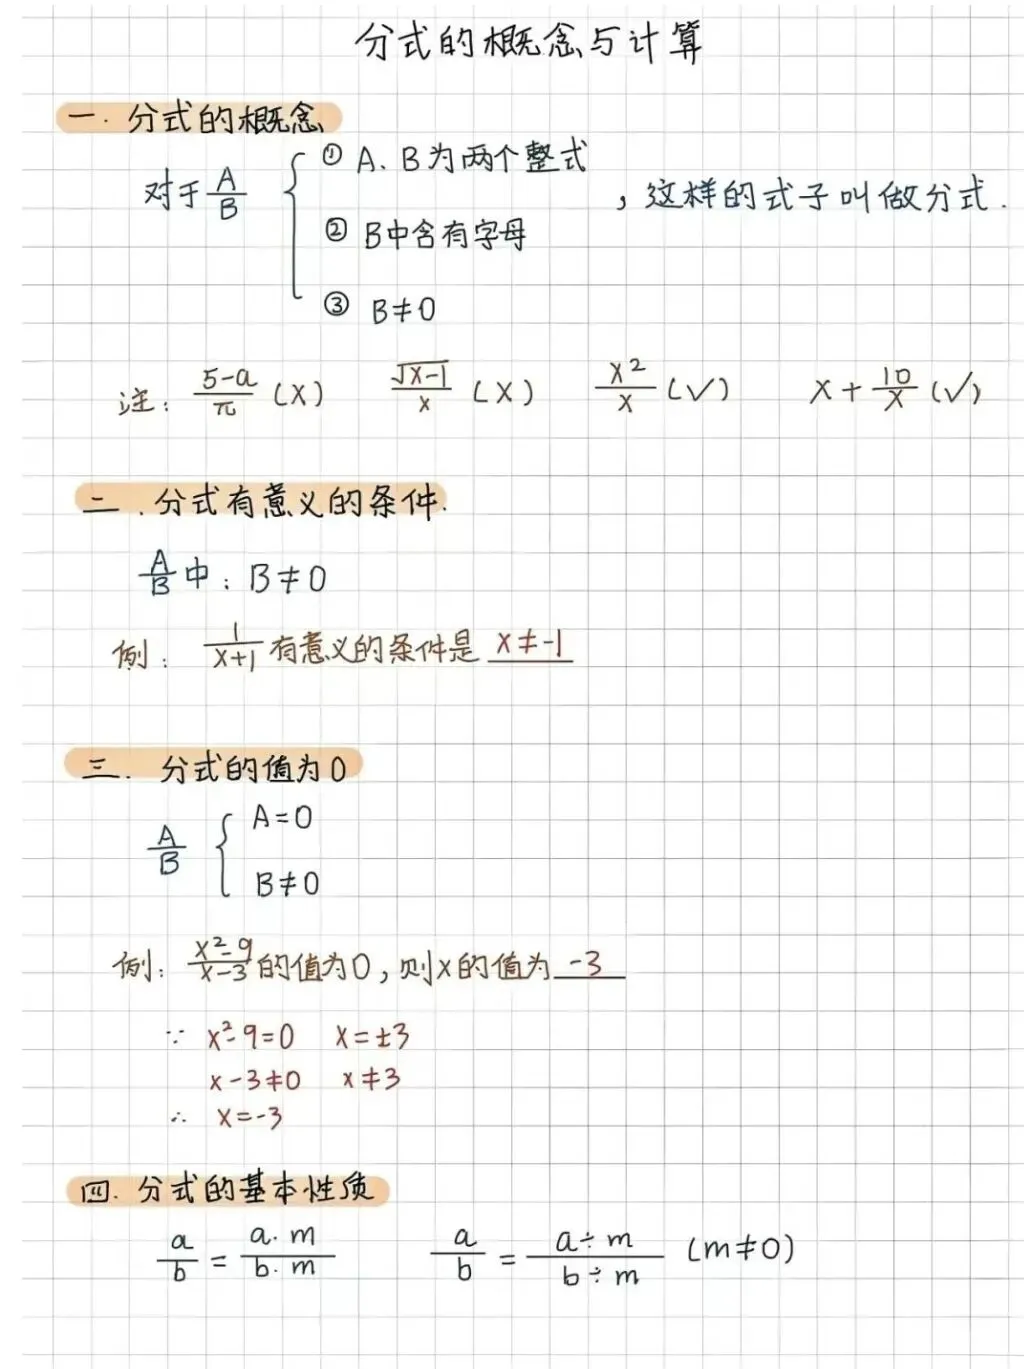 分式的概念与计算
一. 分式的概念
对于 A/B { ① A、B为两个整式
② B中含有字母
③ B≠0
, 这样的式子叫做分式.
注: (5-a)/π (X) √(x-1)/x (X) x²/x (√) x+10/x (√)
二. 分式有意义的条件.
A/B 中: B≠0
例: 1/(x+1) 有意义的条件是 x≠-1
三. 分式的值为0
A/B { A=0
B≠0
例: (x²-9)/(x-3) 的值为0, 则x的值为 -3
∵ x²-9=0 x=±3
x-3≠0 x≠3
∴ x=-3
四. 分式的基本性质
a/b = (a·m)/(b·m) a/b = (a÷m)/(b÷m) (m≠0)